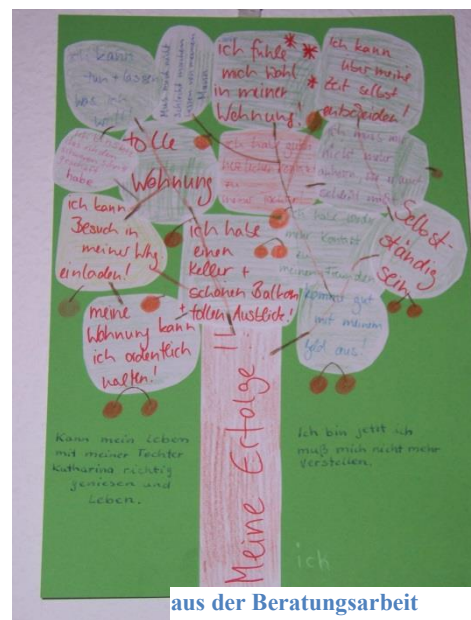 ich kann
tun + lassen
was ich
will!
Muss mich nicht
schlecht machen
lassen von meinem
Mann
ich fühle
mich wohl
in meiner
Wohnung!
Ich kann
über meine
Zeit selbst
entscheiden!
habe
tolle
Wohnung
ich muss mir
nicht mehr
anhören, was ich
ich kann
Besuch in
meiner Whg.
einladen!
ich habe
einen
Keller +
schönen Balkon
+ tollen Ausblick!
Ich habe
mehr Kontakt
zu
meinen Freunden
Selbst-
ständig
sein
meine
Wohnung kann
ich ordentlich
halten!
komme gut
mit meinem
Geld aus!
Meine Erfolge !!
Kann mein Leben
mit meiner Tochter
Katharina richtig
geniesen und
Leben.
Ich bin jetzt ich
muß mich nicht mehr
verstellen.
ich
aus der Beratungsarbeit